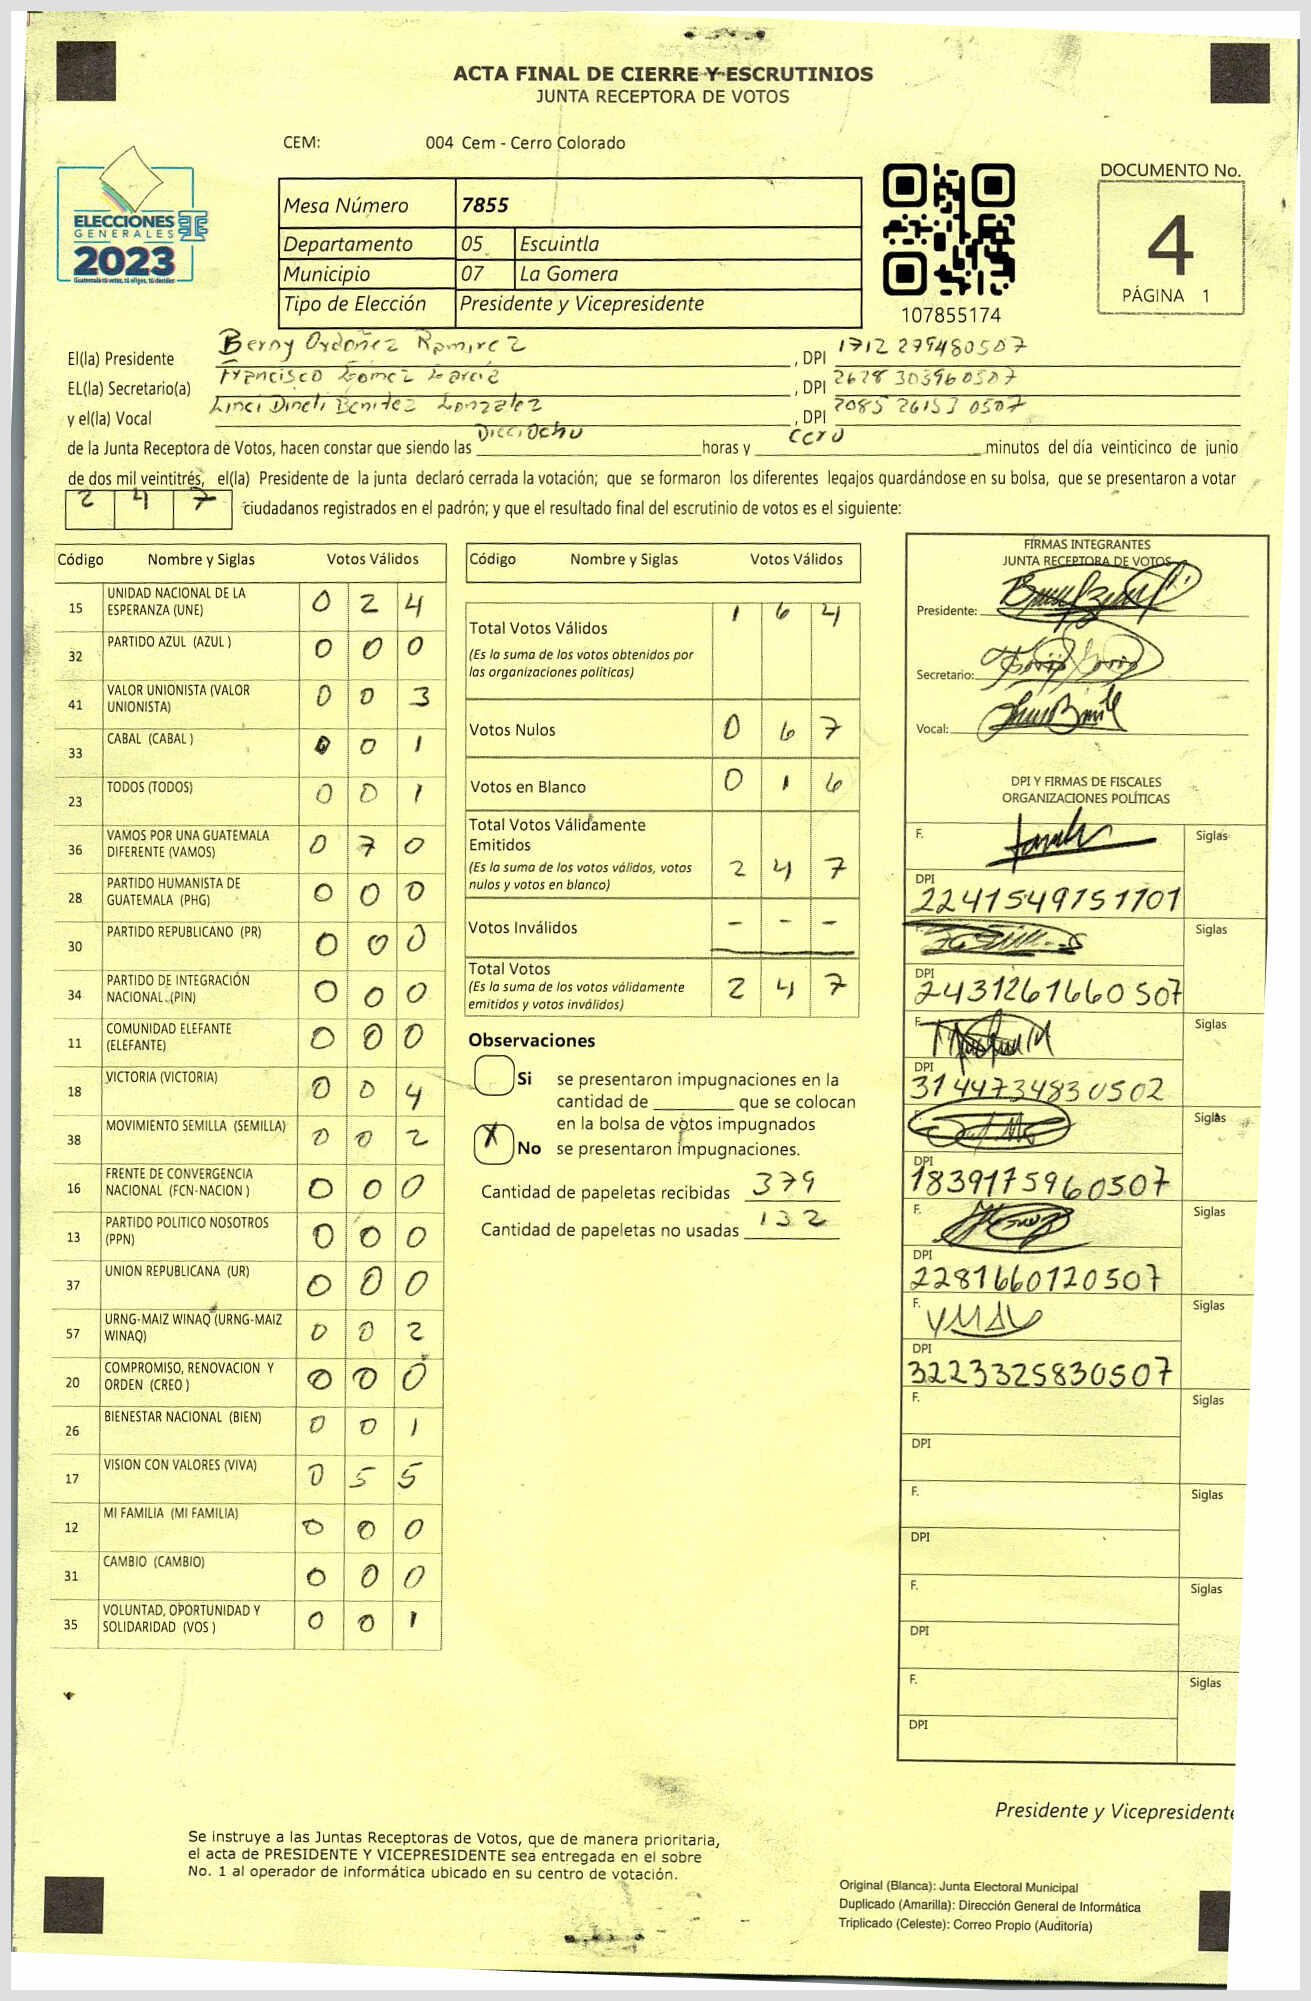 ACTA FINAL DE CIERRE Y ESCRUTINIOS
JUNTA RECEPTORA DE VOTOS
CEM: 004 Cem - Cerro Colorado
ELECCIONES
GENERALES
2023
Guatemala tú votas, tú eliges, tú decides
Mesa Número 7855
Departamento 05 Escuintla
Municipio 07 La Gomera
Tipo de Elección Presidente y Vicepresidente
107855174
DOCUMENTO No.
4
PÁGINA 1
El(la) Presidente Berny Ordoñez Ramirez , DPI 1712 279480507
EL(la) Secretario(a) Francisco Gomez Garcia , DPI 2628 303960507
y el(la) Vocal Linci Dineli Benitez Gonzalez , DPI 2085 26153 0507
de la Junta Receptora de Votos, hacen constar que siendo las Dieciocho horas y cero minutos del día veinticinco de junio
de dos mil veintitrés, el(la) Presidente de la junta declaró cerrada la votación; que se formaron los diferentes legajos guardándose en su bolsa, que se presentaron a votar
2 4 7 ciudadanos registrados en el padrón; y que el resultado final del escrutinio de votos es el siguiente:
Código Nombre y Siglas Votos Válidos
15 UNIDAD NACIONAL DE LA
ESPERANZA (UNE) 0 2 4
32 PARTIDO AZUL (AZUL ) 0 0 0
41 VALOR UNIONISTA (VALOR
UNIONISTA) 0 0 3
33 CABAL (CABAL ) 0 0 1
23 TODOS (TODOS) 0 0 1
36 VAMOS POR UNA GUATEMALA
DIFERENTE (VAMOS) 0 7 0
28 PARTIDO HUMANISTA DE
GUATEMALA (PHG) 0 0 0
30 PARTIDO REPUBLICANO (PR) 0 0 0
34 PARTIDO DE INTEGRACIÓN
NACIONAL (PIN) 0 0 0
11 COMUNIDAD ELEFANTE
(ELEFANTE) 0 0 0
18 VICTORIA (VICTORIA) 0 0 4
38 MOVIMIENTO SEMILLA (SEMILLA) 0 0 2
16 FRENTE DE CONVERGENCIA
NACIONAL (FCN-NACION ) 0 0 0
13 PARTIDO POLITICO NOSOTROS
(PPN) 0 0 0
37 UNION REPUBLICANA (UR) 0 0 0
57 URNG-MAIZ WINAQ (URNG-MAIZ
WINAQ) 0 0 2
20 COMPROMISO, RENOVACION Y
ORDEN (CREO ) 0 0 0
26 BIENESTAR NACIONAL (BIEN) 0 0 1
17 VISION CON VALORES (VIVA) 0 5 5
12 MI FAMILIA (MI FAMILIA) 0 0 0
31 CAMBIO (CAMBIO) 0 0 0
35 VOLUNTAD, OPORTUNIDAD Y
SOLIDARIDAD (VOS ) 0 0 1
Código Nombre y Siglas Votos Válidos
Total Votos Válidos 1 6 4
(Es la suma de los votos obtenidos por
las organizaciones políticas)
Votos Nulos 0 6 7
Votos en Blanco 0 1 6
Total Votos Válidamente
Emitidos
(Es la suma de los votos válidos, votos
nulos y votos en blanco) 2 4 7
Votos Inválidos - - -
Total Votos
(Es la suma de los votos válidamente
emitidos y votos inválidos) 2 4 7
Observaciones
Si se presentaron impugnaciones en la
cantidad de ________ que se colocan
en la bolsa de votos impugnados
X No se presentaron impugnaciones.
Cantidad de papeletas recibidas 379
Cantidad de papeletas no usadas 132
FIRMAS INTEGRANTES
JUNTA RECEPTORA DE VOTOS
Presidente:
Secretario:
Vocal:
DPI Y FIRMAS DE FISCALES
ORGANIZACIONES POLÍTICAS
F. Siglas
DPI
2241549751101
F. Siglas
DPI
2431261660507
F. Siglas
DPI
3144734830502
F. Siglas
DPI
1839175960507
F. Siglas
DPI
2281660120507
F. Siglas
DPI
3223325830507
F. Siglas
DPI
F. Siglas
DPI
F. Siglas
DPI
F. Siglas
DPI
Presidente y Vicepresidente
Se instruye a las Juntas Receptoras de Votos, que de manera prioritaria,
el acta de PRESIDENTE Y VICEPRESIDENTE sea entregada en el sobre
No. 1 al operador de informática ubicado en su centro de votación.
Original (Blanca): Junta Electoral Municipal
Duplicado (Amarilla): Dirección General de Informática
Triplicado (Celeste): Correo Propio (Auditoría)